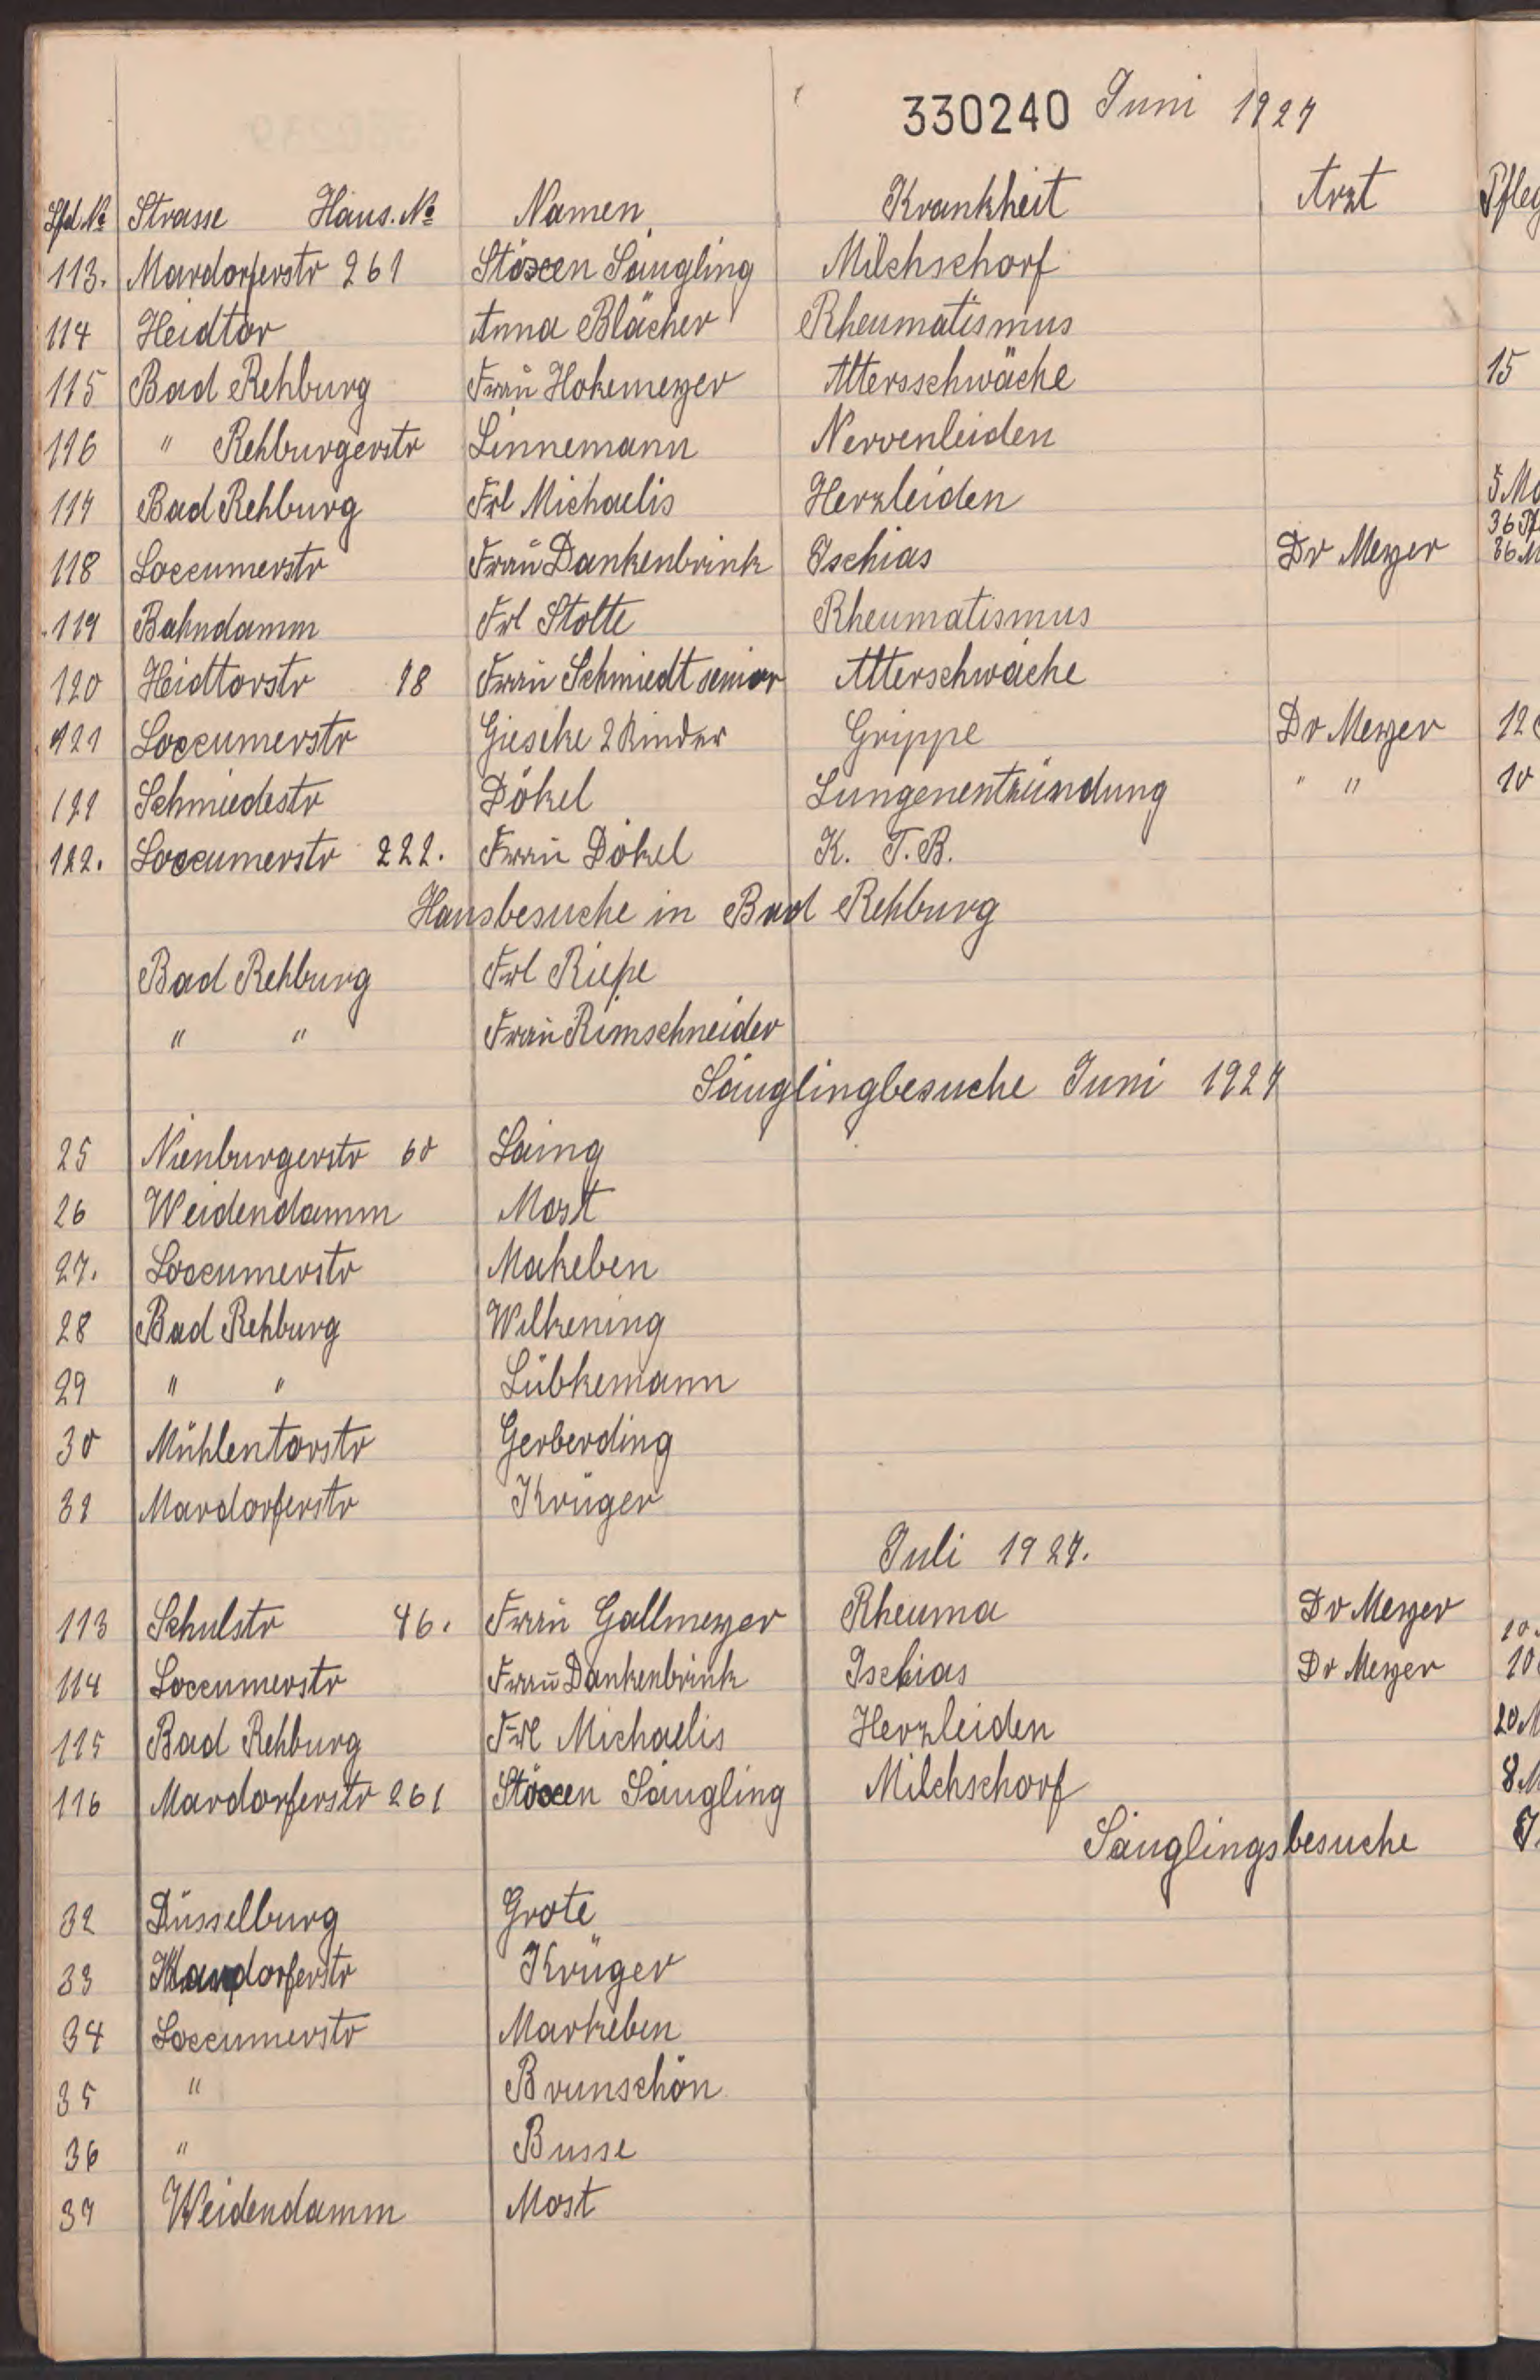 330240 Juni 1927
Lfd. № Strasse Haus. № Namen Krankheit Arzt Pfleg
113. Mardorferstr 261 Stöxen Säugling Milchschorf
114 Heidtor Anna Blächer Rheumatismus
115 Bad Rehburg Frau Hokemeyer Altersschwäche 15
116 " Rehburgerstr Linnemann Nervenleiden
117 Bad Rehburg Frl Michaelis Herzleiden
118 Loccumerstr Frau Dankenbrink Ischias Dr Meyer
119 Bahndamm Frl Stolte Rheumatismus
120 Heidtorstr 18 Frau Schmiedt senior Alterschwäche
121 Loccumerstr Gieseke 2 Kinder Grippe Dr Meyer 12
121 Schmiedestr Dökel Lungenentzündung " " 10
122. Loccumerstr 222. Frau Dökel K. T. B.
Hausbesuche in Bad Rehburg
Bad Rehburg Frl Riepe
" " Frau Rimschneider
Säuglingbesuche Juni 1927
25 Nienburgerstr 60 Laing
26 Weidendamm Most
27. Loccumerstr Makeben
28 Bad Rehburg Wilkening
29 " " Lübkemann
30 Mühlentorstr Gerberding
31 Mardorferstr Krüger
Juli 1927.
113 Schulstr 46. Frau Gallmeyer Rheuma Dr Meyer 10
114 Loccumerstr Frau Dankenbrink Ischias Dr Meyer 10
115 Bad Rehburg Frl Michaelis Herzleiden 20 M
116 Mardorferstr 261 Stöxen Säugling Milchschorf 8 M
Säuglingsbesuche
32 Düsselburg Grote
33 Mardorferstr Krüger
34 Loccumerstr Markeben
35 " Brunschön
36 " Busse
37 Weidendamm Most